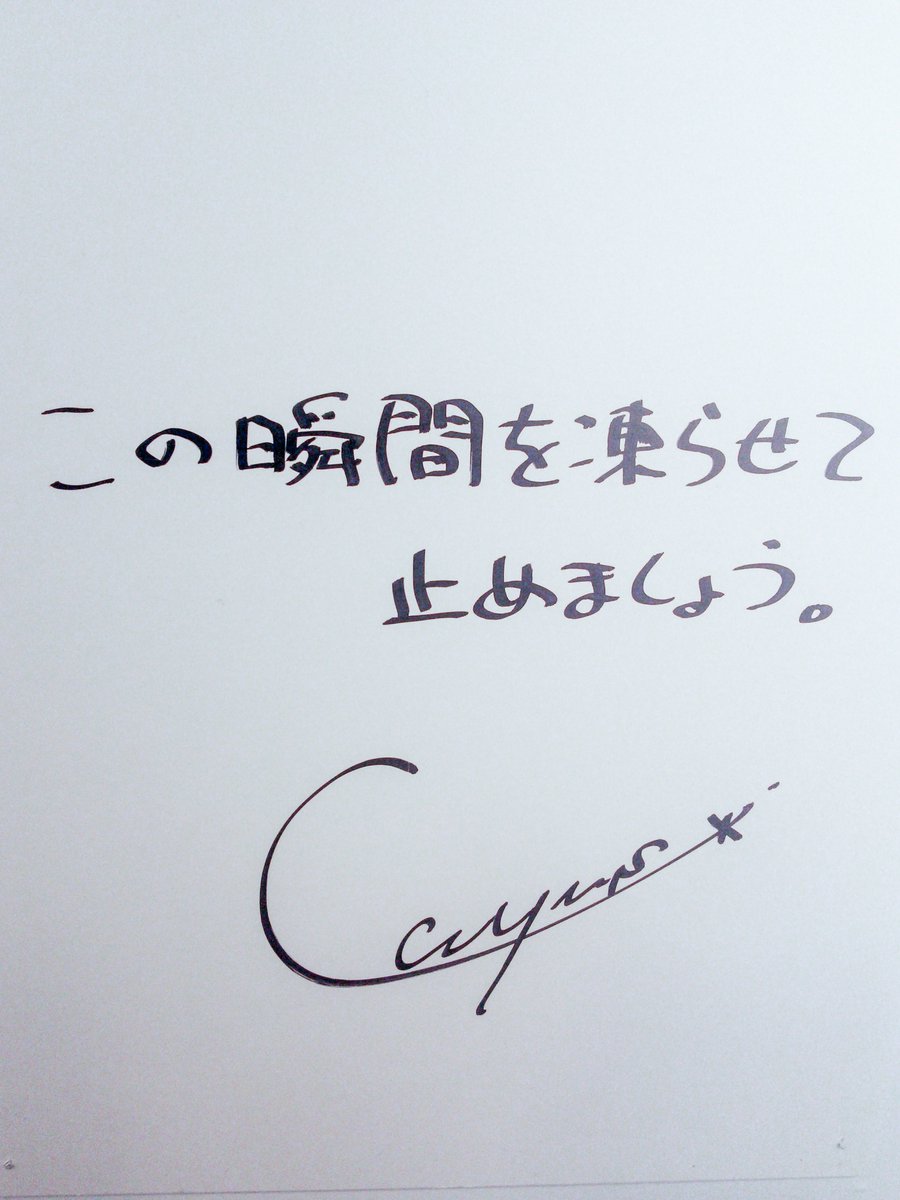 この瞬間を凍らせて
止めましょう。